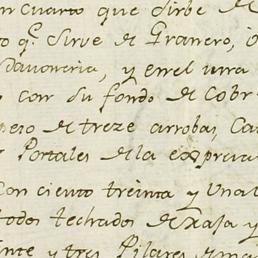 un cuarto que sirbe de
to q.e sirve de Granero, o
Savoneria, y en el una
con su fondo de cobr
peso de treze arrobas, Ca
Portales de la expresa
con ciento treinta y una
todos techados de xaja y
inte y tres Pilares